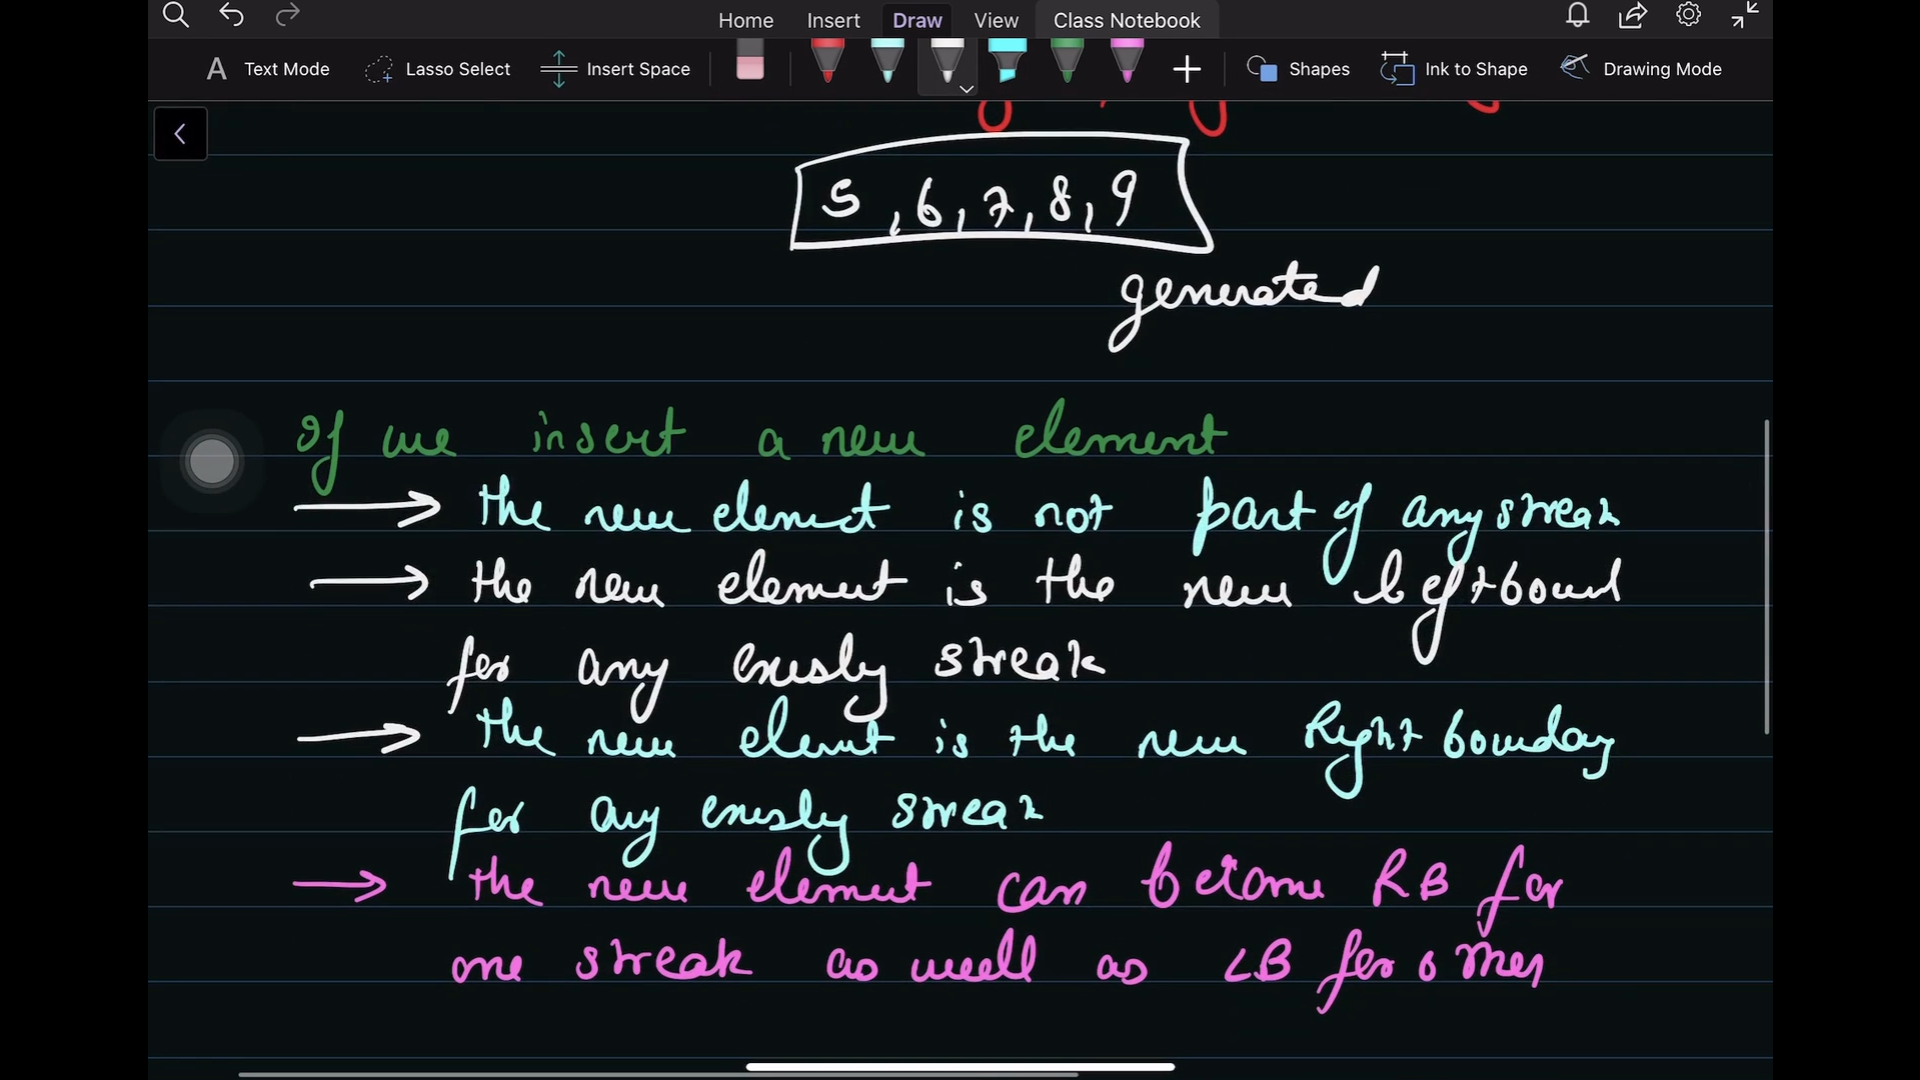 Home Insert Draw View Class Notebook
A Text Mode Lasso Select Insert Space Shapes Ink to Shape Drawing Mode
5, 6, 7, 8, 9
generated
If we insert a new element
→ the new element is not part of any streak
→ the new element is the new left bound
for any streak
→ the new element is the new Right boundary
for any streak
→ the new element can become RB for
one streak as well as LB for other